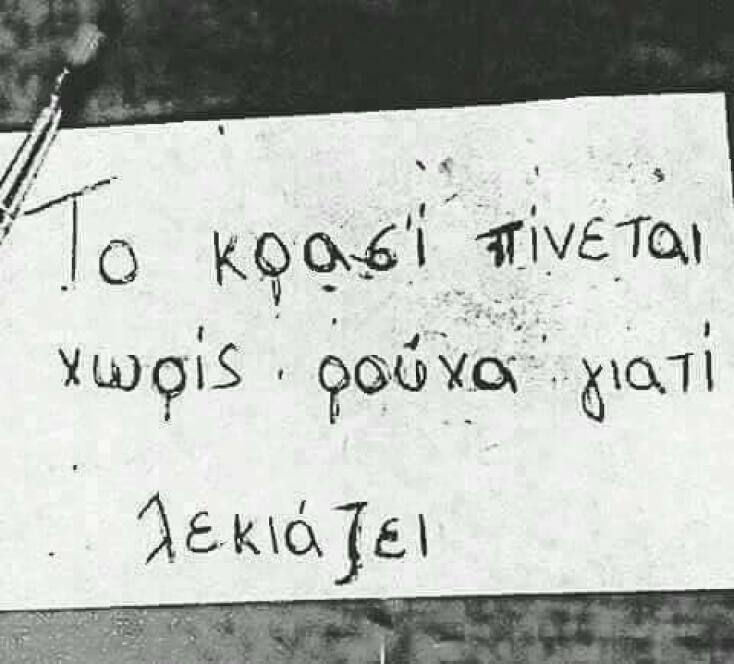 Το κρασί πίνεται
χωρίς ρούχα γιατί
λεκιάζει